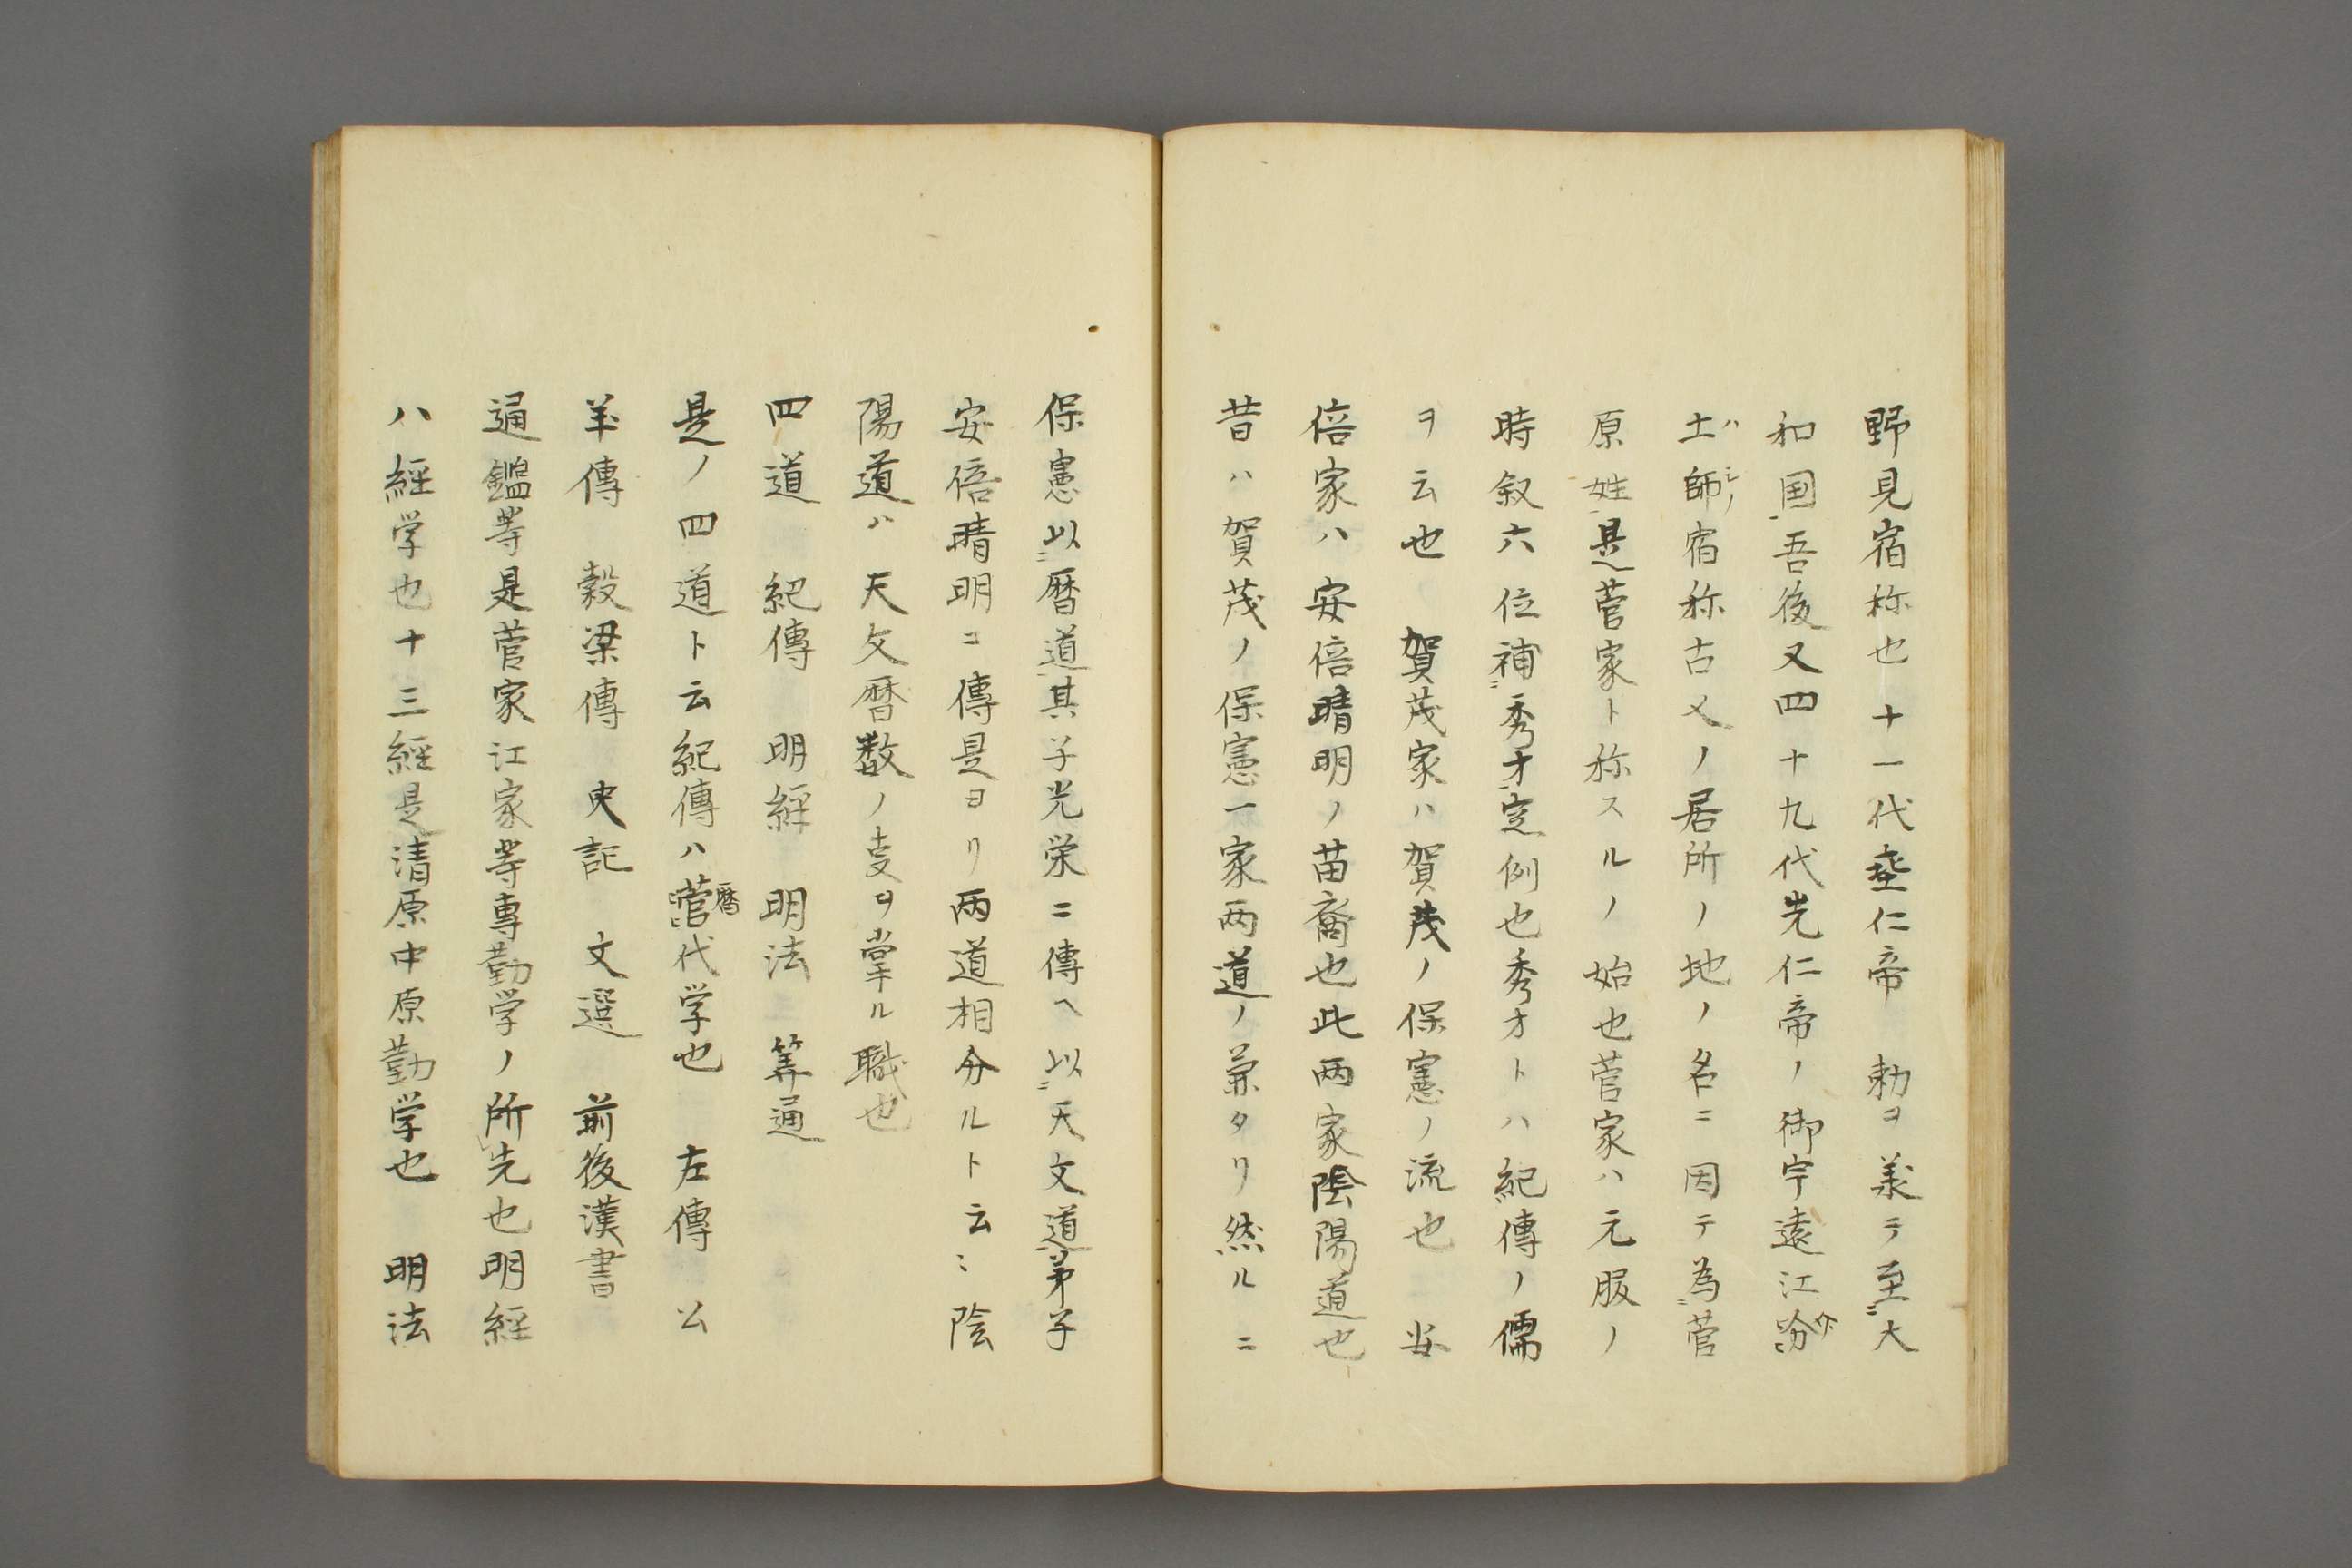 野見宿祢也十一代埀仁帝　勅ヲ義テ至ニ大
和国吾後又四十九代光仁帝ノ御宇遠江介
土師ハシノ宿祢古人ノ居所ノ地ノ名ニ因テ為ニ菅
原姓是菅家ト称スルノ始也菅家ハ元服ノ
時叙六位補ニ秀才定例也秀才トハ紀傳ノ儒
ヲ云也　賀茂家ハ賀茂ノ保憲ノ流也　安
倍家ハ安倍晴明ノ苗裔也此両家陰陽道也
昔ハ賀茂ノ保憲一家両道ノ兼タリ然ルニ
保憲以ニ暦道其子光栄ニ傳ヘ以ニ天文道弟子
安倍晴明ニ傳是ヨリ両道相分ルト云ミ陰
陽道ハ天文暦数ノ支ヲ掌ル職也
四道　紀傳　明経　明法　筭通
是ノ四道ト云紀傳ハ菅暦代学也　左傳　公
羊傳　穀梁傳　史記　文選　前後漢書
通鑑等是菅家江家等專勤学ノ所先也明経
ハ経学也十三経是清原中原勤学也　明法